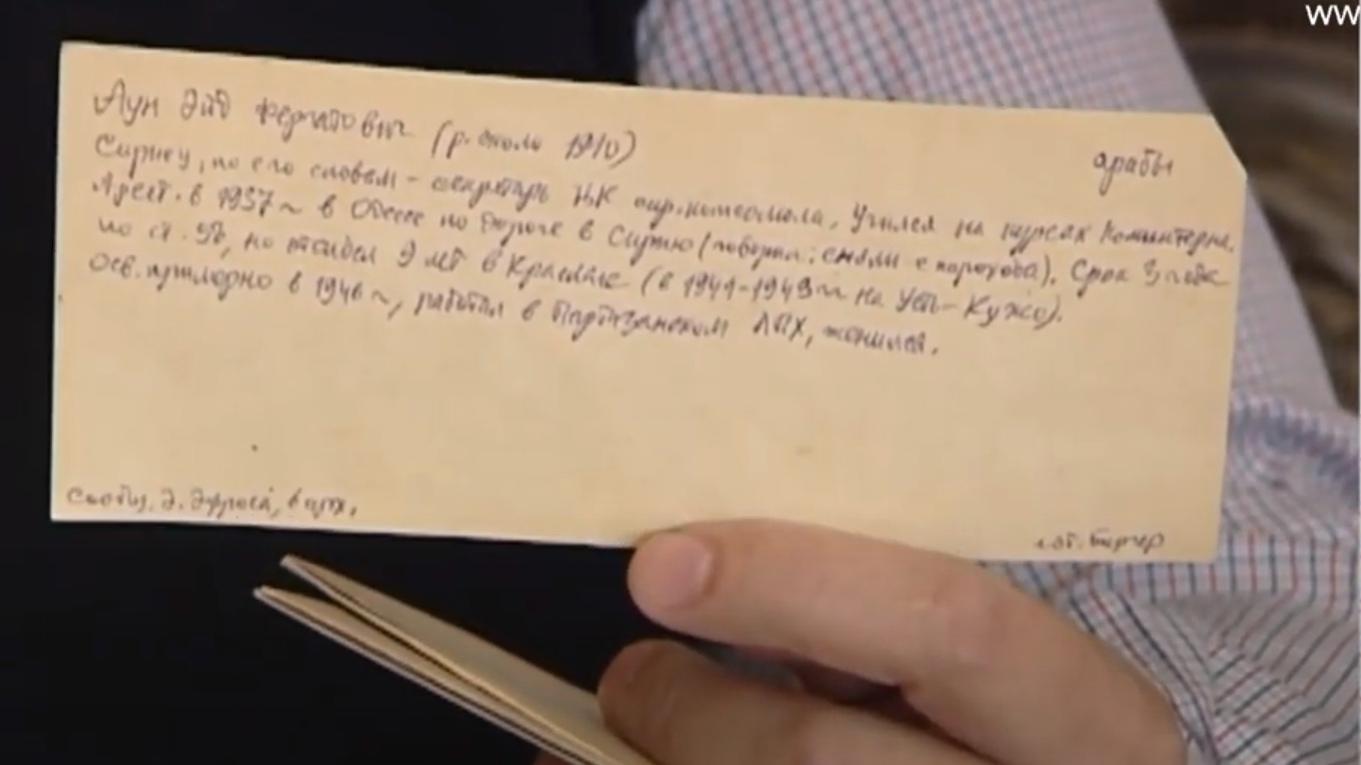 ww
Аун Эйд Фератович (р. около 1910)
арабы
Сириец, по его словам – секретарь ЦК сир. комсомола. Учился на курсах Коминтерна.
Арест. в 1937 г. в Одессе по дороге в Сирию (говорил: сняли с парохода). Срок 3 года
по ст. 58, но отсидел 9 лет в Краслаге (в 1941-1943 гг. на
Осв. примерно в 1946 г., работал в Партизанском ЛПХ, женился.
Сообщ. Э. Эфроса,